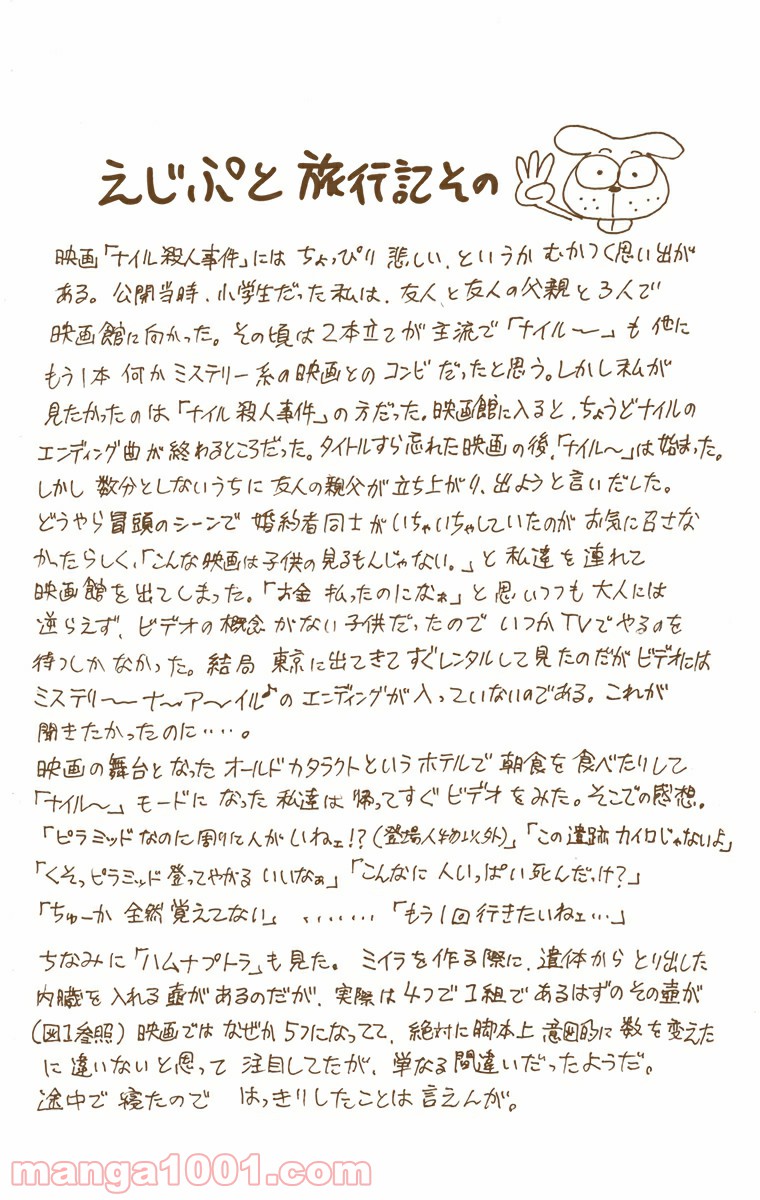 えじぷと旅行記その
映画「ナイル殺人事件」には ちょっぴり 悲しい、というか むかつく思い出が
ある。公開当時、小学生だった私は、友人と友人の父親と3人で
映画館に向かった。その頃は2本立てが主流で「ナイル〜」も他に
もう1本 何かミステリー系の映画とのコンビだったと思う。しかし私が
見たかったのは「ナイル殺人事件」の方だった。映画館に入ると、ちょうどナイルの
エンディング曲が終わるところだった。タイトルすら忘れた映画の後、「ナイル〜」は始まった。
しかし 数分としないうちに 友人の親父が立ち上がり、出ようと言いだした。
どうやら冒頭のシーンで 婚約者同士がいちゃいちゃしていたのが お気に召さな
かったらしく、「こんな映画は子供の見るもんじゃない。」と 私達を連れて
映画館を出てしまった。「お金 払ったのになぁ」と思いつつも 大人には
逆らえず、ビデオの概念がない子供だったので いつかTVでやるのを
待つしかなかった。結局 東京に出てきてすぐレンタルして見たのだがビデオには
ミステリ〜〜ナ〜ア〜イル♪のエンディングが入っていないのである。これが
聞きたかったのに‥‥。
映画の舞台となったオールドカタラクトというホテルで 朝食を食べたりして
「ナイル〜」モードになった私達は帰ってすぐビデオをみた。そこでの感想。
「ピラミッドなのに周りに人がいねェ!?(登場人物以外)」「この遺跡カイロじゃないよ」
「くそっピラミッド登ってやがる いいなぁ」「こんなに人いっぱい死んだっけ?」
「ちゅーか 全然覚えてない」 ‥‥‥‥ 「もう1回行きたいねェ…」
ちなみに「ハムナプトラ」も見た。 ミイラを作る際に、遺体からとり出した
内臓を入れる壺があるのだが、実際は4つで1組であるはずのその壺が
(図1参照) 映画ではなぜか5つになってて、絶対に脚本上 意図的に数を変えた
に違いないと思って 注目してたが、単なる間違いだったようだ。
途中で寝たので はっきりしたことは言えんが。
manga1001.com